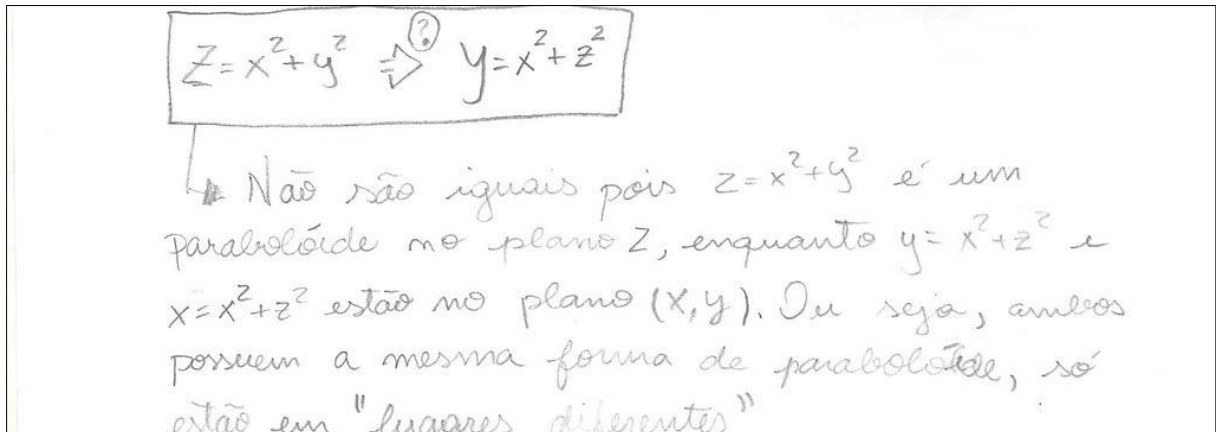 Z = x² + y² ⇒ ? y = x² + z²
Não são iguais pois z = x² + y² é um
parabolóide no plano Z, enquanto y = x² + z² e
x = x² + z² estão no plano (x, y). Ou seja, ambos
possuem a mesma forma de parabolóide, só
estão em "lugares diferentes"